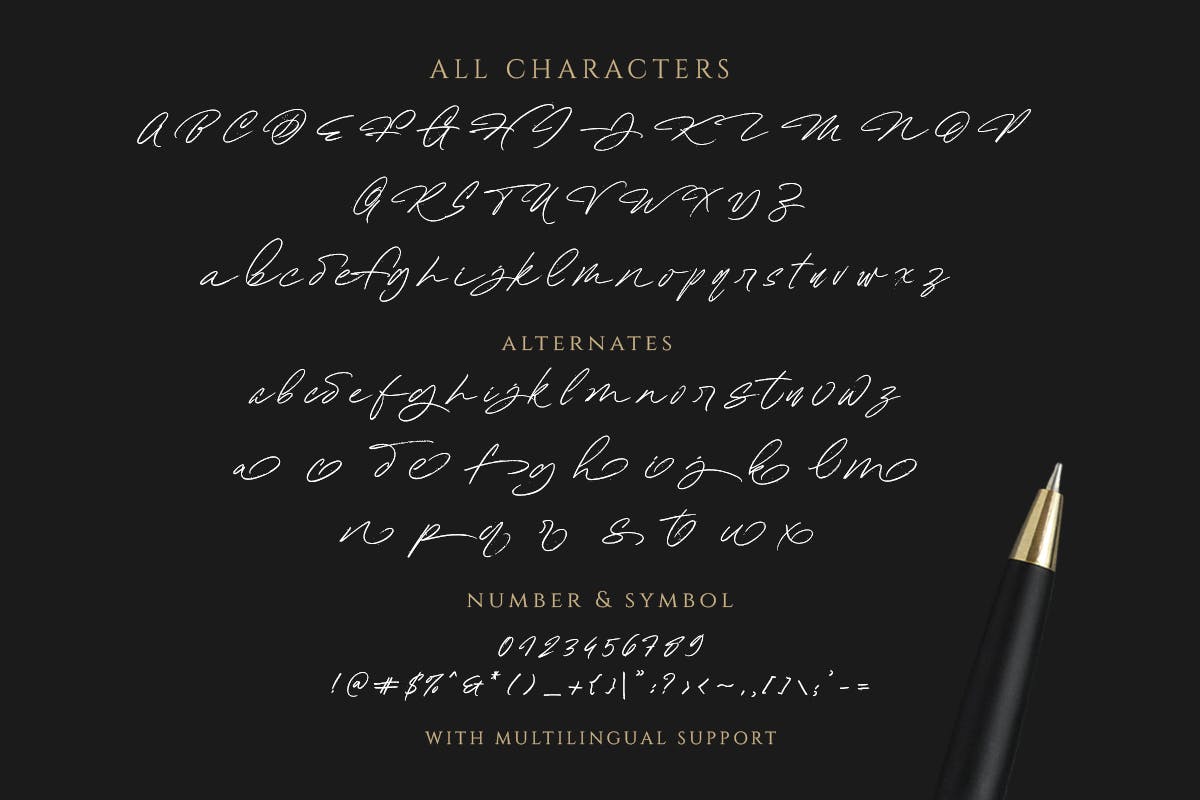 ALL CHARACTERS
A B C D E F G H I J K L M N O P
Q R S T U V W X Y Z
a b c d e f g h i j k l m n o p q r s t u v w x z
ALTERNATES
a b c d e f g h i j k l m n o r s t u v w z
a c d e f g h i j k l m
n p q r s t u x
NUMBER & SYMBOL
0123456789
!@#$%^&*()_+{}|":?><~.,[]\;'-=
WITH MULTILINGUAL SUPPORT